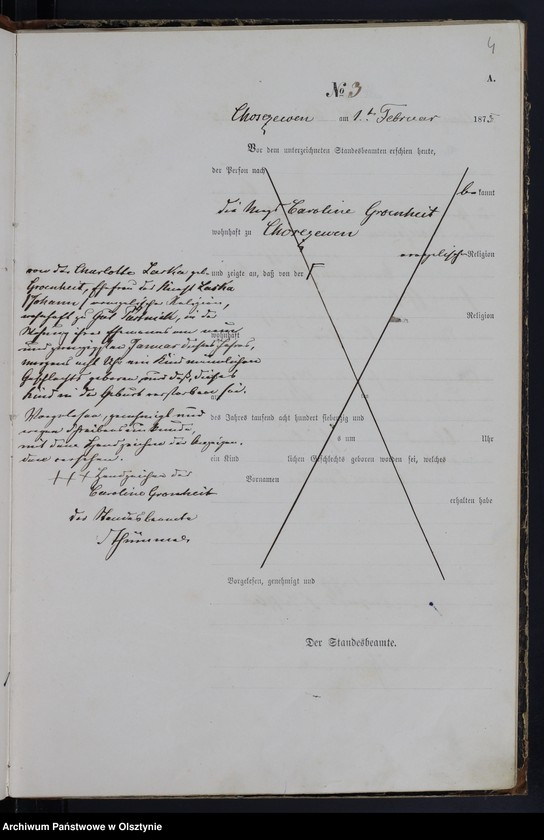 4
A.
№ 3
Chosczewen am 1. t. Februar 1875
Vor dem unterzeichneten Standesbeamten erschien heute,
der Person nach
be kannt
die Magd Caroline Groenheit
wohnhaft zu Chosczewen
evangelischer Religion
und zeigte an, daß von der
Religion
wohnhaft
des Jahres tausend acht hundert siebenzig und
s um Uhr
ein Kind lichen Geschlechts geboren worden sei, welches
Vornamen
erhalten habe
Vorgelesen, genehmigt und
Der Standesbeamte.
von der Charlotte Laska geb.
Groenheit, Ehefrau des Knecht Laska
(Johann) evangelischer Religion,
wohnhaft zu Gut, in der
Wohnung ihres Ehemannes am neun
und zwanzigsten Januar dieses Jahres,
morgens acht Uhr ein Kind männlichen
Geschlechts geboren und daß dieses
Kind in der Geburt verstorben sei.
Vorgelesen, genehmigt und
wegen Schreibensunkunde,
mit dem Handzeichen der Anzeigen-
den versehen.
+ + + Handzeichen der
Caroline Groenheit
Der Standesbeamte
Archiwum Państwowe w Olsztynie